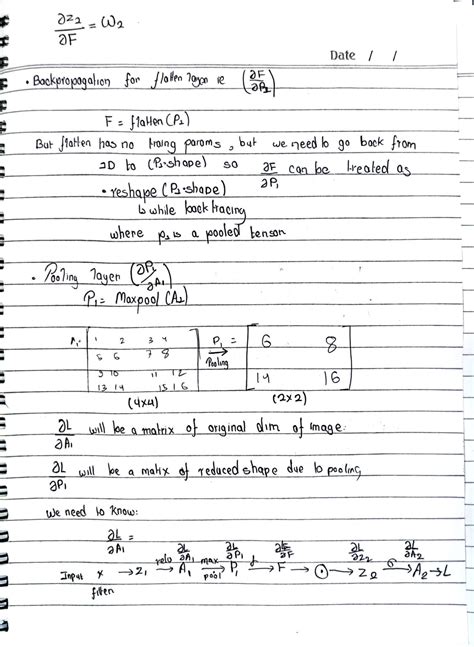 ∂z₂/∂F = ω₂
Date / /
• Backpropagation for flatten layer ie (∂F/∂P₂)
F = flatten (P₂)
But flatten has no traing params, but we need to go back from
1D to (P₂·shape) so ∂F/∂P₁ can be treated as
• reshape (P₂·shape)
↳ while back tracing
where p₂ is a pooled tensor
• Pooling layer (∂P₁/∂A₁)
P₁ = Maxpool (A₂)
A₁ = [ 1 2 3 4 P₁ = [ 6 8
5 6 7 8 → Pooling
9 10 11 12
13 14 15 16 ] 14 16 ]
(4x4) (2x2)
∂L/∂A₁ will be a matrix of original dim of image.
∂L/∂P₁ will be a matix of reduced shape due to pooling
we need to know:
∂L/∂A₁ =
relu ∂L/∂A₁ max pool ∂L/∂P₁ f ∂L/∂F ∂L/∂z₂ σ ∂L/∂A₂
Input x → z₁ → A₁ → P₁ → F → ⊙ → z₂ → A₂ → L